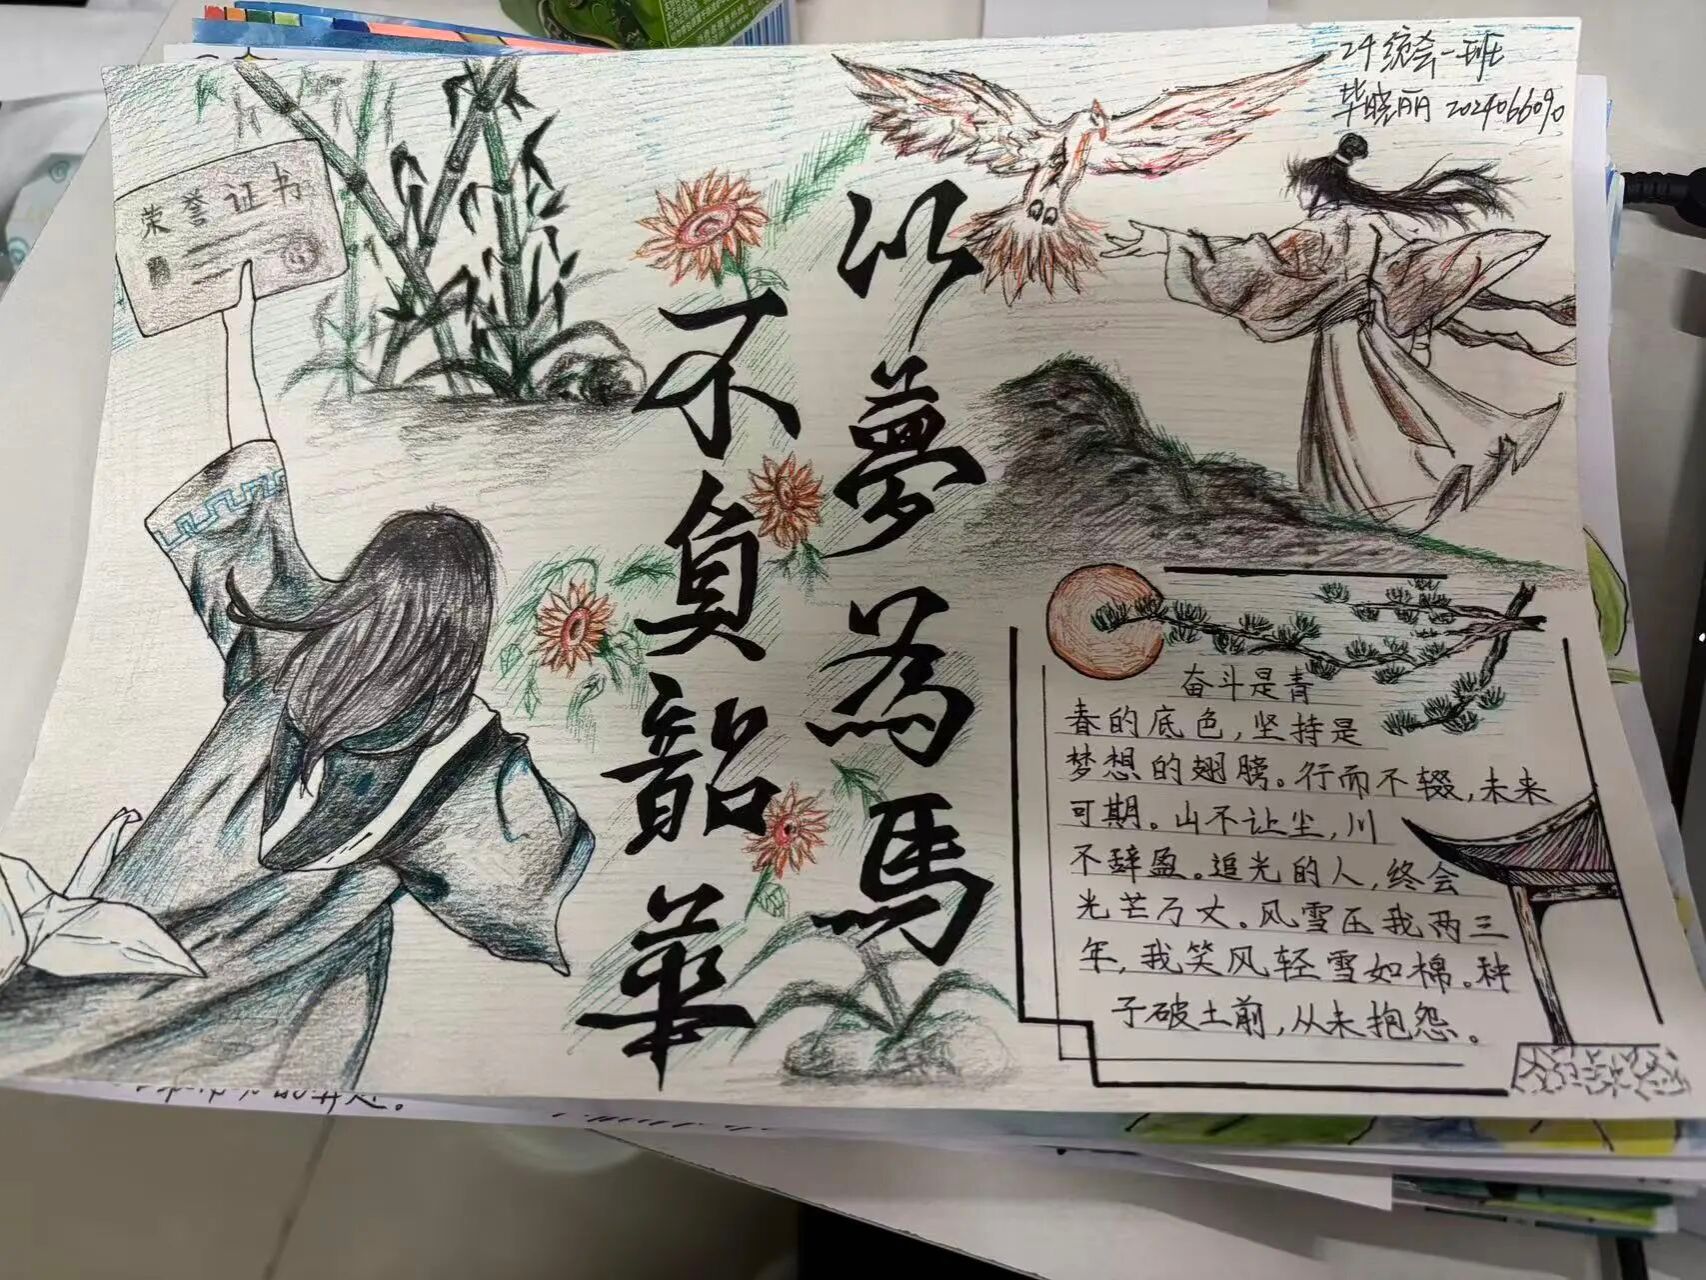 24统会一班
毕晓丽 2024066090
荣誉证书
以夢為馬
不負韶華
奋斗是青
春的底色，坚持是
梦想的翅膀。行而不辍，未来
可期。山不让尘，川
不辞盈。追光的人，终会
光芒万丈。风雪压我两三
年，我笑风轻雪如棉。种
子破土前，从未抱怨。